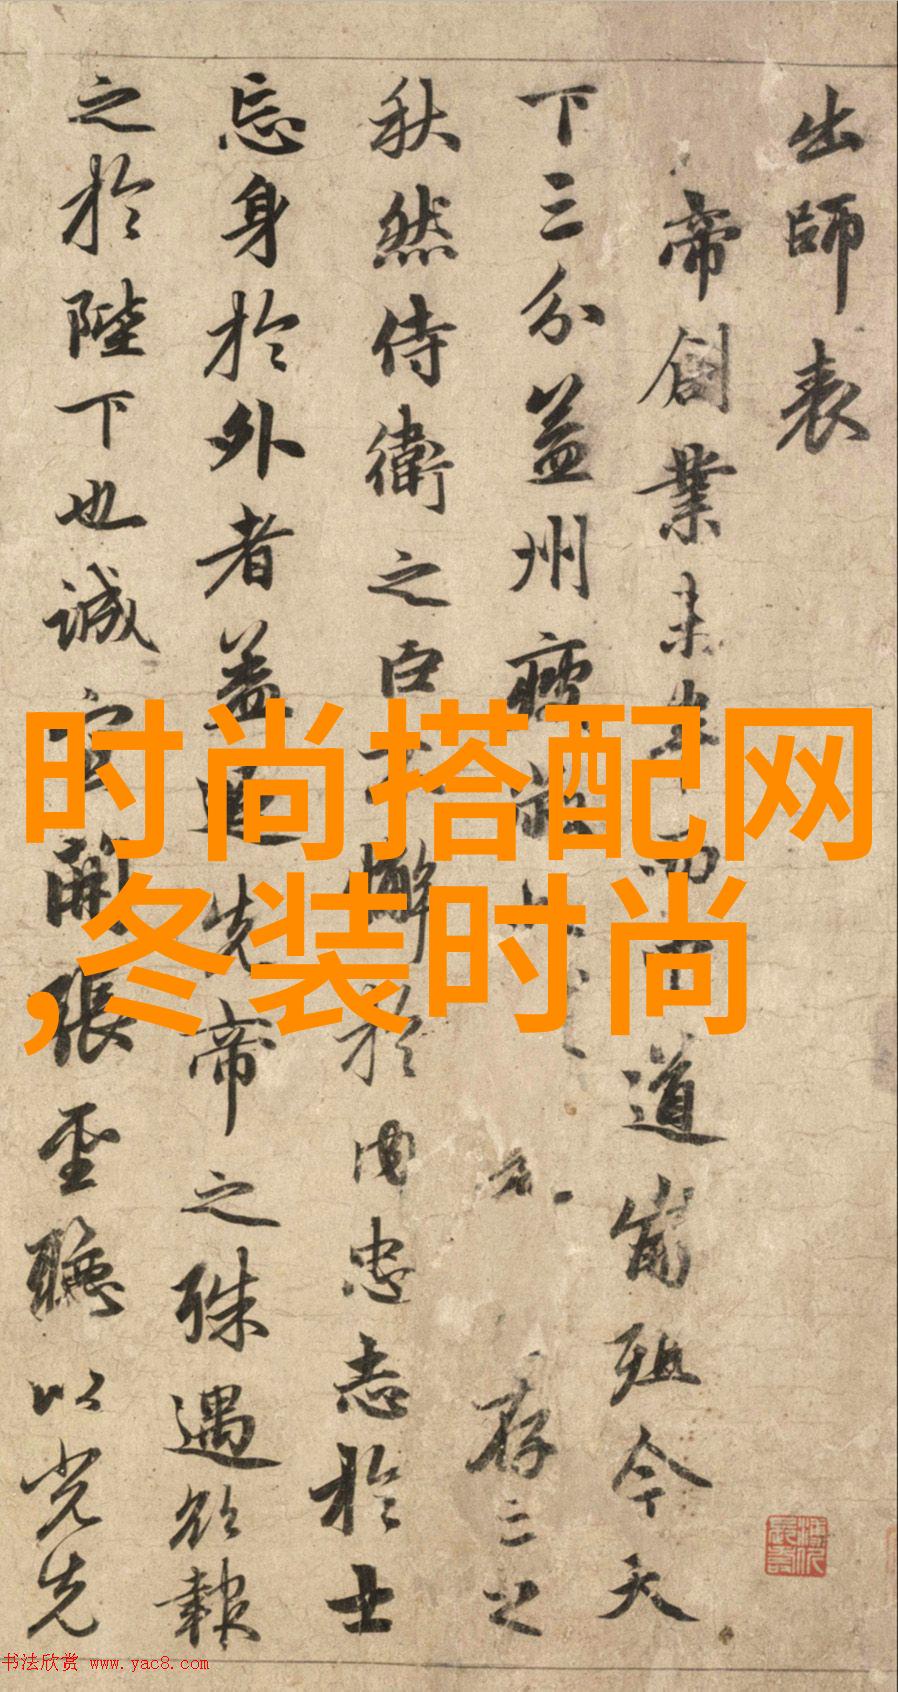 出師表
帝創業未半而中道崩殂今天
下三分益州疲
存亡之
秋然侍衛之臣不懈於内忠志於士
忘身於外者蓋追先帝之殊遇欲報
之於陛下也誠宜開張聖聽以光先
时尚搭配网
,冬装时尚
书法欣赏 www.yac8.com